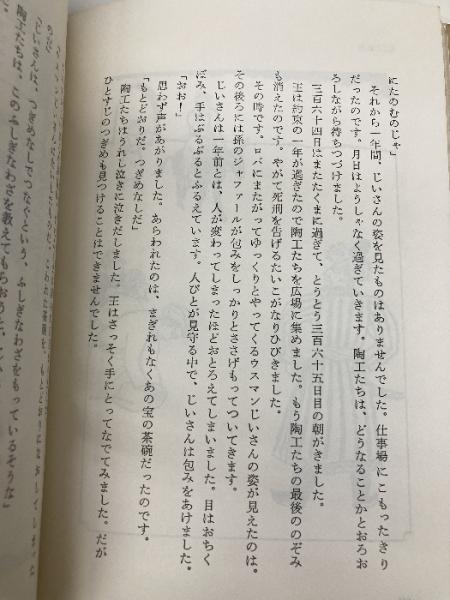 にたのむのじゃ」
それから一年間、じいさんの姿を見たものはありませんでした。仕事場にこもったきり
だったのです。月日はようしゃなく過ぎていきます。陶工たちは、どうなることかとおろお
ろしながら待ちつづけました。
三百六十四日はまたたくまに過ぎて、とうとう三百六十五日目の朝がきました。
王は約束の一年が過ぎたので陶工たちを広場に集めました。もう陶工たちの最後ののぞみ
も消えたのです。やがて死刑を告げるたいこがなりひびきました。
その時です。ロバにまたがってゆっくりとやってくるウスマンじいさんの姿が見えたのは。
その後ろには孫のジャファールが包みをしっかりとささげもってついてきます。
じいさんは一年前とは、人が変わってしまったほどおとろえてしまいました。目はおちく
ぼみ、手はぶるぶるとふるえています。人びとが見守る中で、じいさんは包みをあけました。
「おお！」
思わず声があがりました。あらわれたのは、まぎれもなくあの宝の茶碗だったのです。
「もとどおりだ。つぎめなしだ」
陶工たちはうれし泣きに泣きだしました。王はさっそく手にとってなでてみました。だが
ひとすじのつぎめも見つけることはできませんでした。
「じいさんは、つぎめなしでつなぐという、ふしぎなわざをもっているそうな」
陶工たちは、このふしぎなわざを教えてもらおうと、